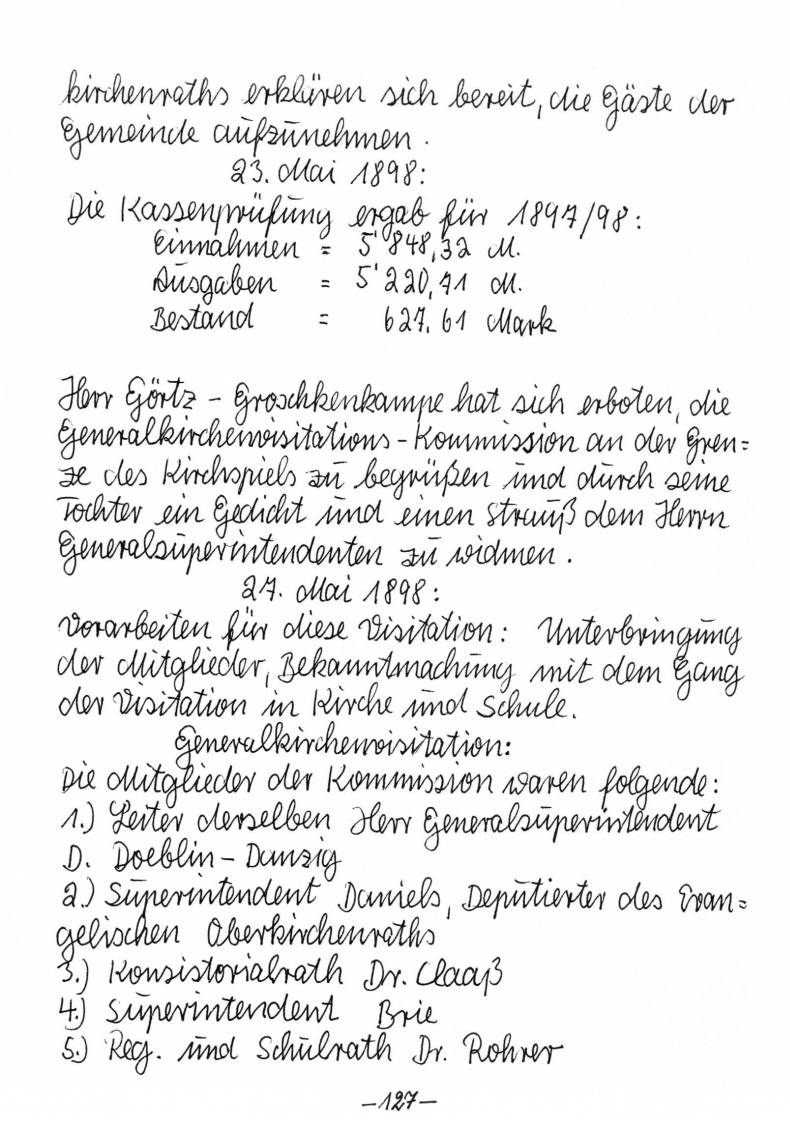 kirchenraths erklären sich bereit, die Gäste der
Gemeinde aufzunehmen.
23. Mai 1898:
Die Kassenprüfung ergab für 1897/98:
Einnahmen = 5'848,32 M.
Ausgaben = 5'220,71 M.
Bestand = 627.61 Mark
Herr Görtz - Groschkenkampe hat sich erboten, die
Generalkirchenvisitations-Kommission an der Gren=
ze des Kirchspiels zu begrüßen und durch seine
Tochter ein Gedicht und einen Strauß dem Herrn
Generalsuperintendenten zu widmen.
27. Mai 1898:
Vorarbeiten für diese Visitation: Unterbringung
der Mitglieder, Bekanntmachung mit dem Gang
der Visitation in Kirche und Schule.
Generalkirchenvisitation:
Die Mitglieder der Kommission waren folgende:
1.) Leiter derselben Herr Generalsuperintendent
D. Doeblin-Danzig
2.) Superintendent Daniels, Deputierter des Evan=
gelischen Oberkirchenraths
3.) Konsistorialrath Dr. Claaß
4.) Superintendent Brie
5.) Reg. und Schulrath Dr. Rohrer
-127-